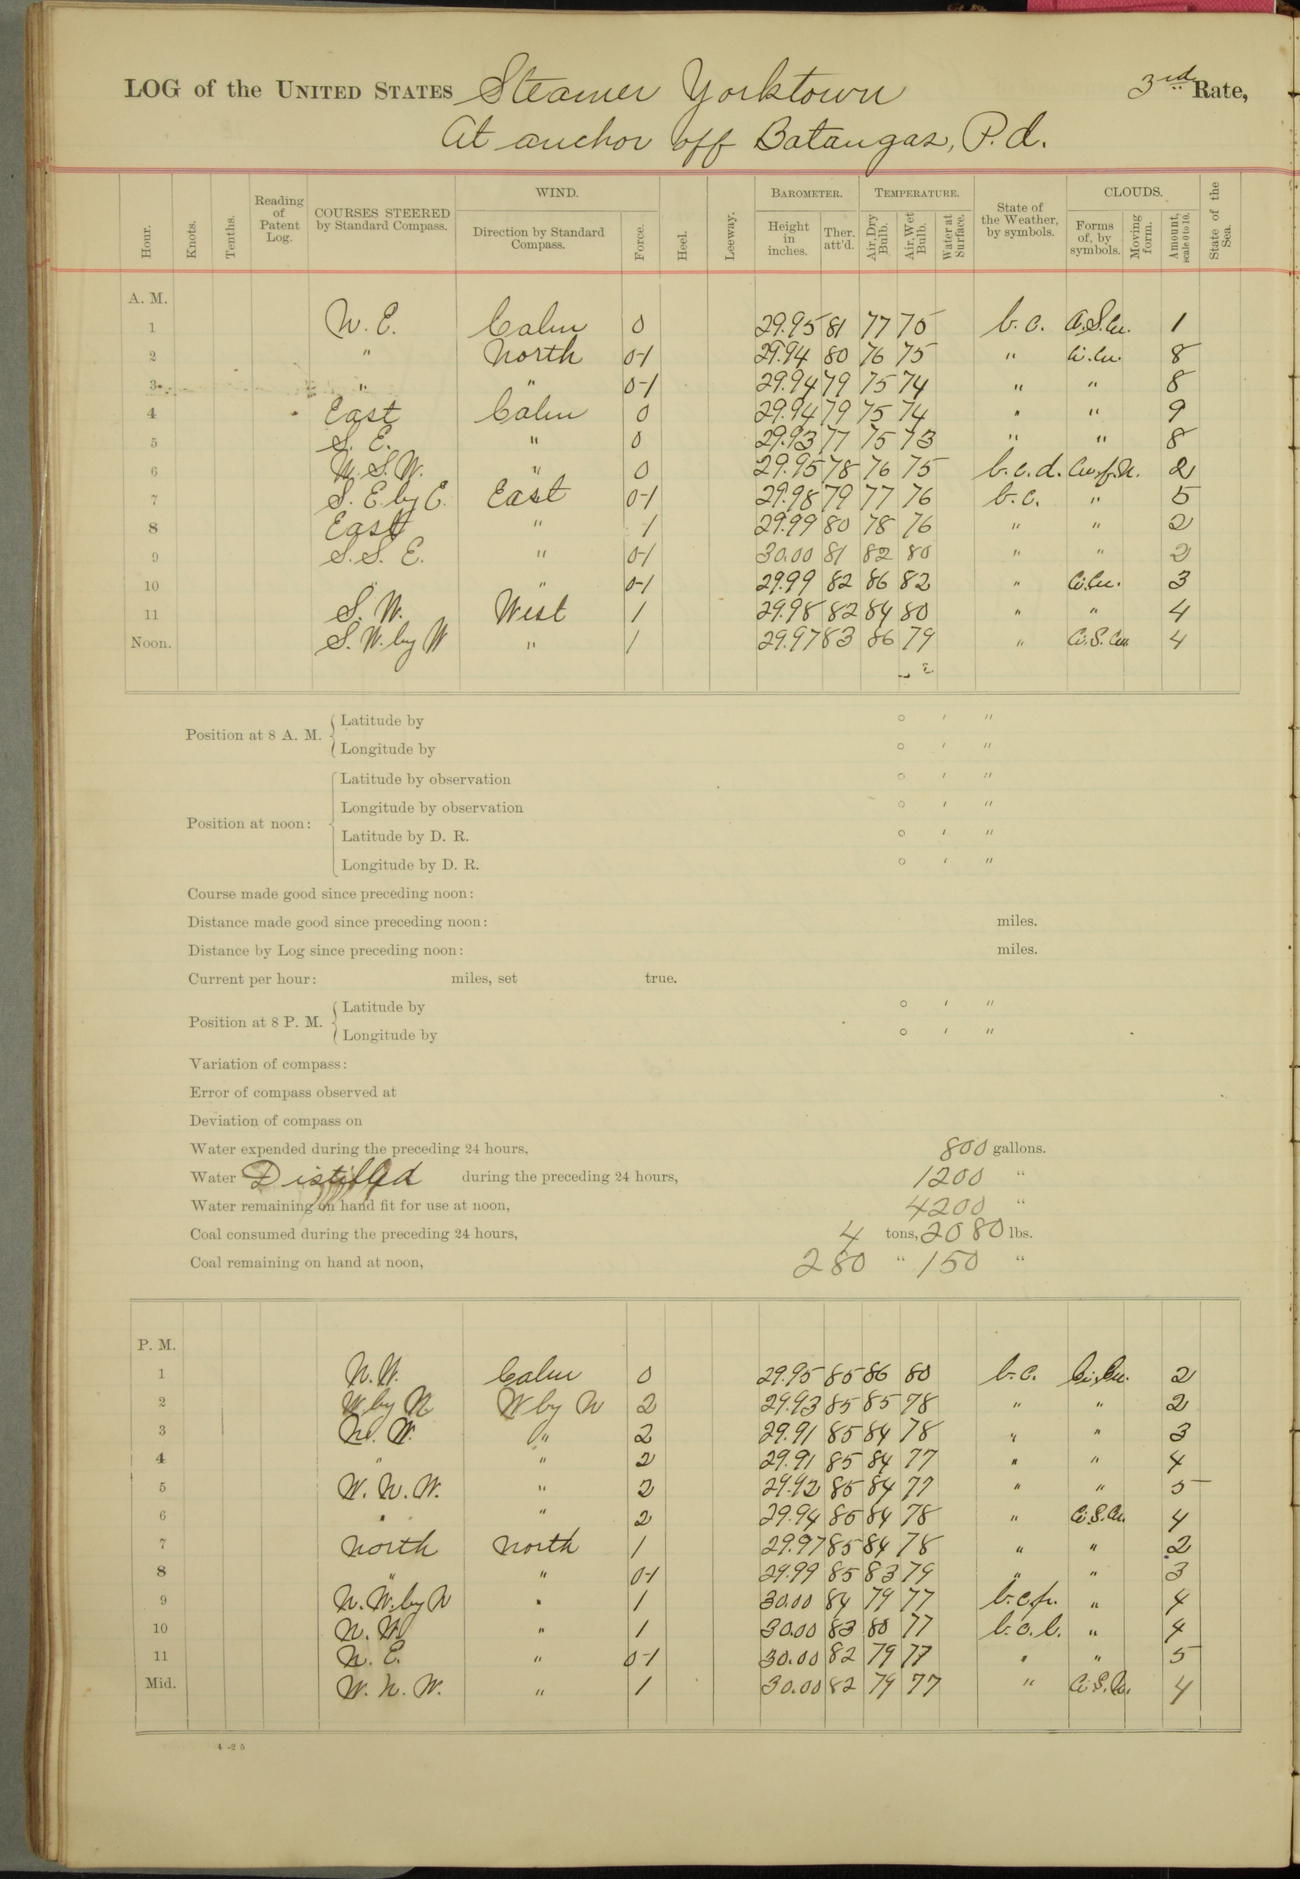 LOG of the UNITED STATES Steamer Yorktown 3rd Rate,
At anchor off Batangas, P.I.
Hour. Knots. Tenths. Reading of Patent Log. COURSES STEERED by Standard Compass. WIND. Direction by Standard Compass. Force. Heel. Leeway. BAROMETER. Height in inches. Ther. att'd. TEMPERATURE. Air, Dry Bulb. Air, Wet Bulb. Water at Surface. State of the Weather, by symbols. CLOUDS. Forms of, by symbols. Moving form. Amount, scale 0 to 10. State of the Sea.
A. M.
1 N. E. Calm 0 29.95 81 77 75 b.c. Ci.S.Cu. 1
2 " North 0-1 29.94 80 76 75 " Ci.Cu. 8
3 " " 0-1 29.94 79 75 74 " " 8
4 East Calm 0 29.94 79 75 74 " " 9
5 S. E. " 0 29.93 77 75 73 " " 8
6 W. S. W. " 0 29.95 78 76 75 b.c.d. Cu.f.N. 2
7 S. E. by E. East 0-1 29.98 79 77 76 b.c. " 5
8 East " 1 29.99 80 78 76 " " 2
9 S. S. E. " 0-1 30.00 81 82 80 " " 2
10 " " 0-1 29.99 82 86 82 " Ci.Cu. 3
11 S. W. West 1 29.98 82 84 80 " " 4
Noon. S. W. by W " 1 29.97 83 86 79 " Ci.S.Cu. 4
Position at 8 A. M. Latitude by ° ′ ″
Longitude by ° ′ ″
Position at noon: Latitude by observation ° ′ ″
Longitude by observation ° ′ ″
Latitude by D. R. ° ′ ″
Longitude by D. R. ° ′ ″
Course made good since preceding noon:
Distance made good since preceding noon: miles.
Distance by Log since preceding noon: miles.
Current per hour: miles, set true.
Position at 8 P. M. Latitude by ° ′ ″
Longitude by ° ′ ″
Variation of compass:
Error of compass observed at
Deviation of compass on
Water expended during the preceding 24 hours, 800 gallons.
Water Distilled during the preceding 24 hours, 1200 "
Water remaining on hand fit for use at noon, 4200 "
Coal consumed during the preceding 24 hours, 4 tons, 2080 lbs.
Coal remaining on hand at noon, 280 " 150 "
P. M.
1 N.W. Calm 0 29.95 85 86 80 b.c. Ci.Cu. 2
2 W by N W by N 2 29.93 85 85 78 " " 2
3 N. W. " 2 29.91 85 84 78 " " 3
4 " " 2 29.91 85 84 77 " " 4
5 W. N. W. " 2 29.92 85 84 77 " " 5
6 " " 2 29.94 85 84 78 " Ci.S.Cu. 4
7 North North 1 29.97 85 84 78 " " 2
8 " " 0-1 29.99 85 83 79 " " 3
9 N. W. by N " 1 30.00 84 79 77 b.c.p. " 4
10 N. W. " 1 30.00 83 80 77 b.c.l. " 4
11 N. E. " 0-1 30.00 82 79 77 " " 5
Mid. W. N. W. " 1 30.00 82 79 77 " Ci.S.Cu. 4
4-25